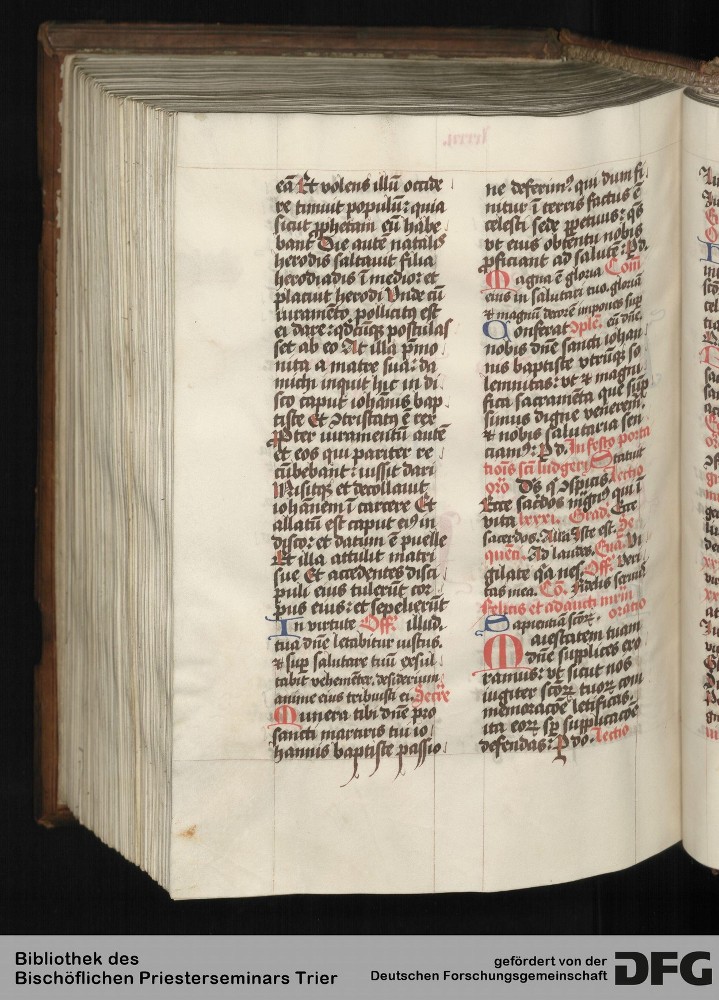 eā Et volens illū occide
re timuit populū: quia
sicut ꝓphetam eū habe
bant Die autē natalis
herodis saltauit filia
herodiadis ī medio: et
placuit herodi Vnde cū
iuramēto pollicitꝰ est
ei dare: qd̄cūqꝫ postulas
set ab eo At illa p̄mo
nita a matre sua: da
michi inquit hic in di
sco caput iohānis bap
tiste Et ꝯtristatꝰ ē rex
Ꝓpter iuramentū autē
et eos qui pariter re
cūbebant: iussit dari
Misitqꝫ et decollauit
iohānem ī carcere Et
allatū est caput eiꝰ in
disco: et datum ē puelle
Et illa attulit matri
sue Et accedentes disci
puli eius tulerūt cor
pus eius: et sepelierūt
In virtute Off. illud.
tua dn̄e letabitur iustus.
⁊ sup̄ salutare tuū exsul
tabit vehementer. desiderium
anime eius tribuisti ei. Secrē
Munera tibi dn̄e pro
sancti martiris tui io
hannis baptiste passio
ne deferimꝰ. qui dum fi
nitur ī terris factus ē
celesti sede ꝑpetuus: q̄s
vt eius obtentu nobis
ꝓficiant ad salutē: P d.
Magna ē gloria Com̄
eius in salutari tuo. gloriā
⁊ magnū decorē impones sup̄
Conferat ꝯplē. eū dn̄e.
nobis dn̄e sancti iohan
nis baptiste vtrūqꝫ so
lemnitas: vt ⁊ magni
fica sacramēta que sūp
simus digne venerem̄.
⁊ nobis salutaria sen
ciamꝰ: P d. In festo porta
tiōis sc̄i ludgeri Statuit
orō Ds̄ q ꝯspicis Lectio
Ecce sacdos mgnꝰ qui ī
vita lxxxi. Grad. Ecce
sacerdos. Alla Iste est. Se
quēti. Ad laudes. Euā. Vi
gilate q̄a nes. Off. Veri
tas mea. Cō. Fidelis seruus
felicis et adaucti mr̄ū
Sapientiā scōꝝ. oratio
Maiestatem tuam
dn̄e supplices exo
ramus: vt sicut nos
iugiter scōꝝ tuoꝝ com
memoracōe letificas.
ita eoꝝ sp̄ supplicacōe
defendas: P do. Lectio
Bibliothek des
Bischöflichen Priesterseminars Trier
gefördert von der
Deutschen Forschungsgemeinschaft
DFG